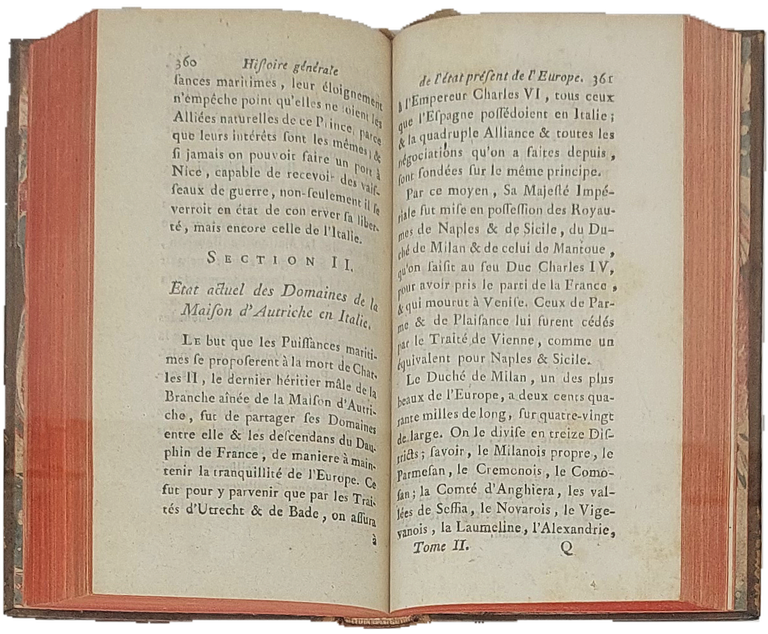 360 Hiſtoire générale
ſances maritimes, leur éloignement
n'empêche point qu'elles ne ſoient les
Alliées naturelles de ce Prince, parce
que leurs intérêts ſont les mêmes; &
ſi jamais on pouvoit faire un port à
Nice, capable de recevoir des vaiſ-
ſeaux de guerre, non-ſeulement il ſe
verroit en état de conſerver ſa liber-
té, mais encore celle de l'Italie.
SECTION II.
Etat actuel des Domaines de la
Maiſon d'Autriche en Italie.
LE but que les Puiſſances mariti-
mes ſe propoſerent à la mort de Char-
les II, le dernier héritier mâle de la
Branche aînée de la Maiſon d'Autri-
che, fut de partager ſes Domaines
entre elle & les deſcendans du Dau-
phin de France, de maniere à main-
tenir la tranquillité de l'Europe. Ce
fut pour y parvenir que par les Trai-
tés d'Utrecht & de Bade, on aſſura
à
de l'état préſent de l'Europe. 361
à l'Empereur Charles VI, tous ceux
que l'Eſpagne poſſédoient en Italie;
& la quadruple Alliance & toutes les
négociations qu'on a faites depuis,
ſont fondées ſur le même principe.
Par ce moyen, Sa Majeſté Impé-
riale fut miſe en poſſeſſion des Royau-
mes de Naples & de Sicile, du Du-
ché de Milan & de celui de Mantoue,
qu'on ſaiſit au feu Duc Charles IV,
pour avoir pris le parti de la France,
& qui mourut à Veniſe. Ceux de Par-
me & de Plaiſance lui furent cédés
par le Traité de Vienne, comme un
équivalent pour Naples & Sicile.
Le Duché de Milan, un des plus
beaux de l'Europe, a deux cents qua-
rante milles de long, ſur quatre-vingt
de large. On le diviſe en treize Diſ-
tricts; ſavoir, le Milanois propre, le
Parmeſan, le Cremonois, le Como-
ſan; la Comté d'Anghiera, les val-
lées de Seſſia, le Novarois, le Vige-
vanois, la Laumeline, l'Alexandrie,
Tome II. Q